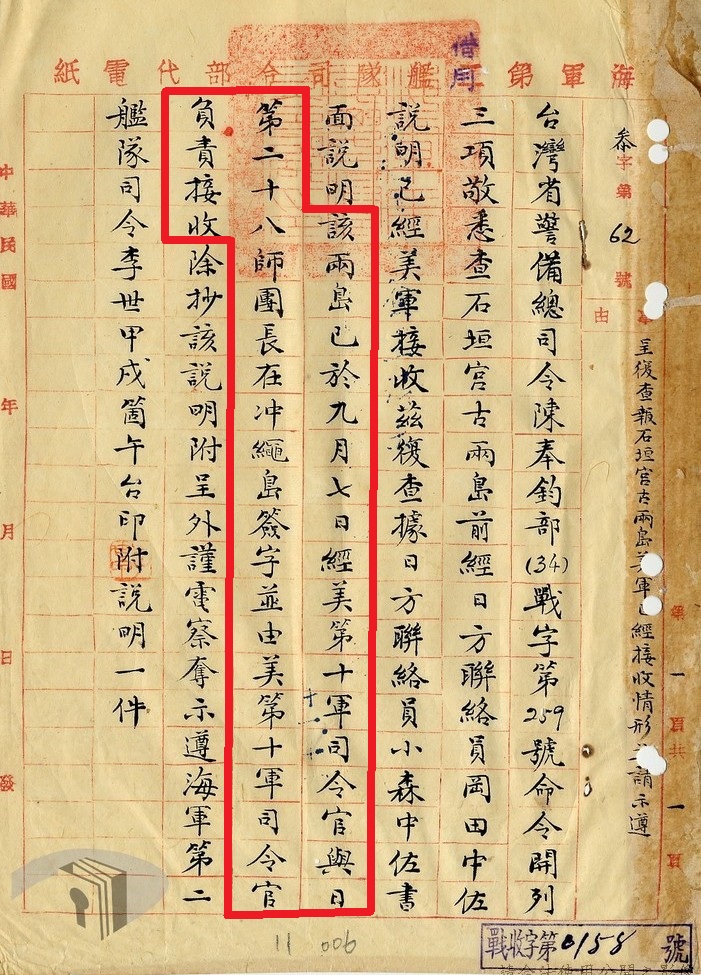 海軍第二艦隊司令部代電紙
借用
叅字第62號
事由
呈復查報石垣宮古兩島美軍已經接收情形並請示遵
台灣省警備總司令陳奉鈞部(34)戰字第259號命令開列
三項敬悉查石垣宮古兩島前經日方聯絡員岡田中佐
說明已經美軍接收茲復查據日方聯絡員小森中佐書
面說明該兩島已於九月七日經美第十軍司令官與日
第二十八師團長在冲繩島簽字並由美第十軍司令官
負責接收除抄該說明附呈外謹電察奪示遵海軍第二
艦隊司令李世甲戌箇午台印附說明一件
中華民國 年 月 日發
第一頁共一頁
戰收字第0158號
11 006